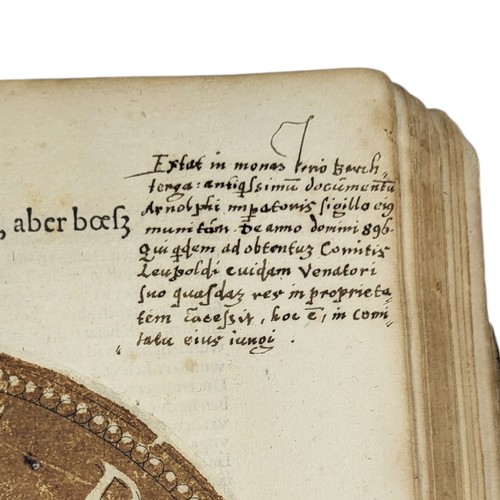 Extat in monas terio berch=
terga: antiqssimū documentū
Arnolphi imp̄atoris sigillo eiꝰ
munitum. De anno domini 896.
, aber bœsz
Qui qdem ad obtentuz Comitis
Leupoldi cuidam Venatori
suo quasdaz res in proprieta=
tem cācessit, hoc ē, in comi=
tatu eius iungi.